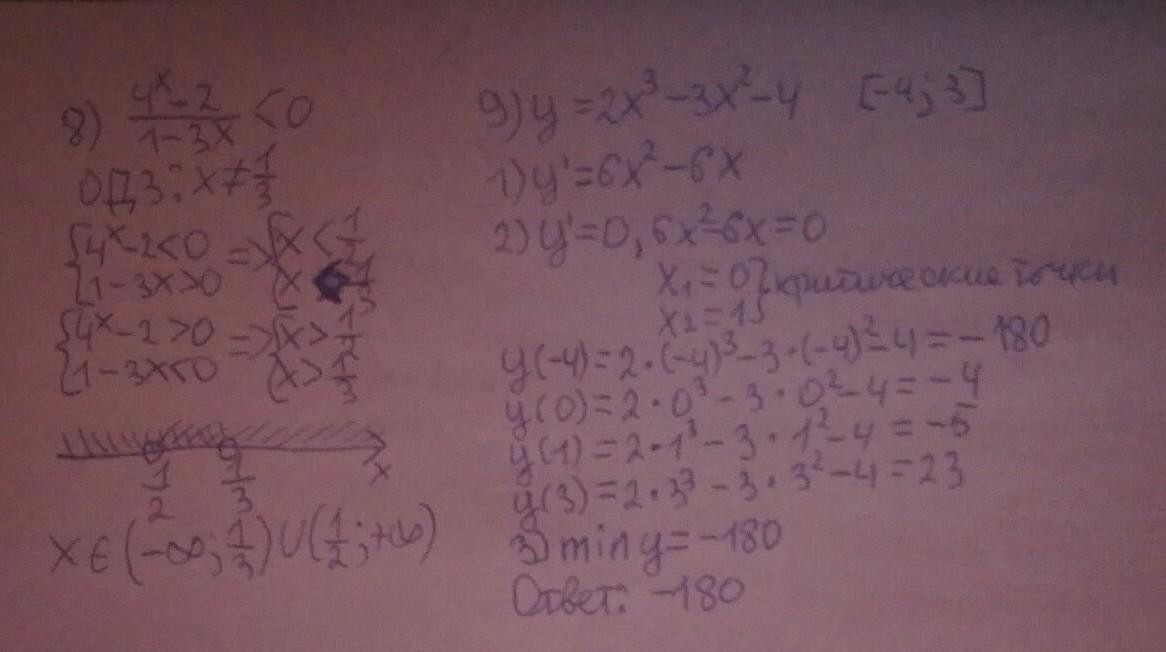 8) (4^x-2)/(1-3x) < 0
ОДЗ: x ≠ 1/3
{4^x-2<0 => {x < 1/2
{1-3x>0 {x < 1/3
{4^x-2>0 => {x > 1/2
{1-3x<0 {x > 1/3
1/2 1/3 x
x ∈ (-∞; 1/3) ∪ (1/2; +∞)
9) y = 2x³-3x²-4 [-4; 3]
1) y' = 6x²-6x
2) y'=0, 6x²-6x=0
x₁ = 0 } критические точки
x₂ = 1 }
y(-4) = 2·(-4)³-3·(-4)²-4 = -180
y(0) = 2·0³-3·0²-4 = -4
y(1) = 2·1³-3·1²-4 = -5
y(3) = 2·3³-3·3²-4 = 23
3) min y = -180
Ответ: -180